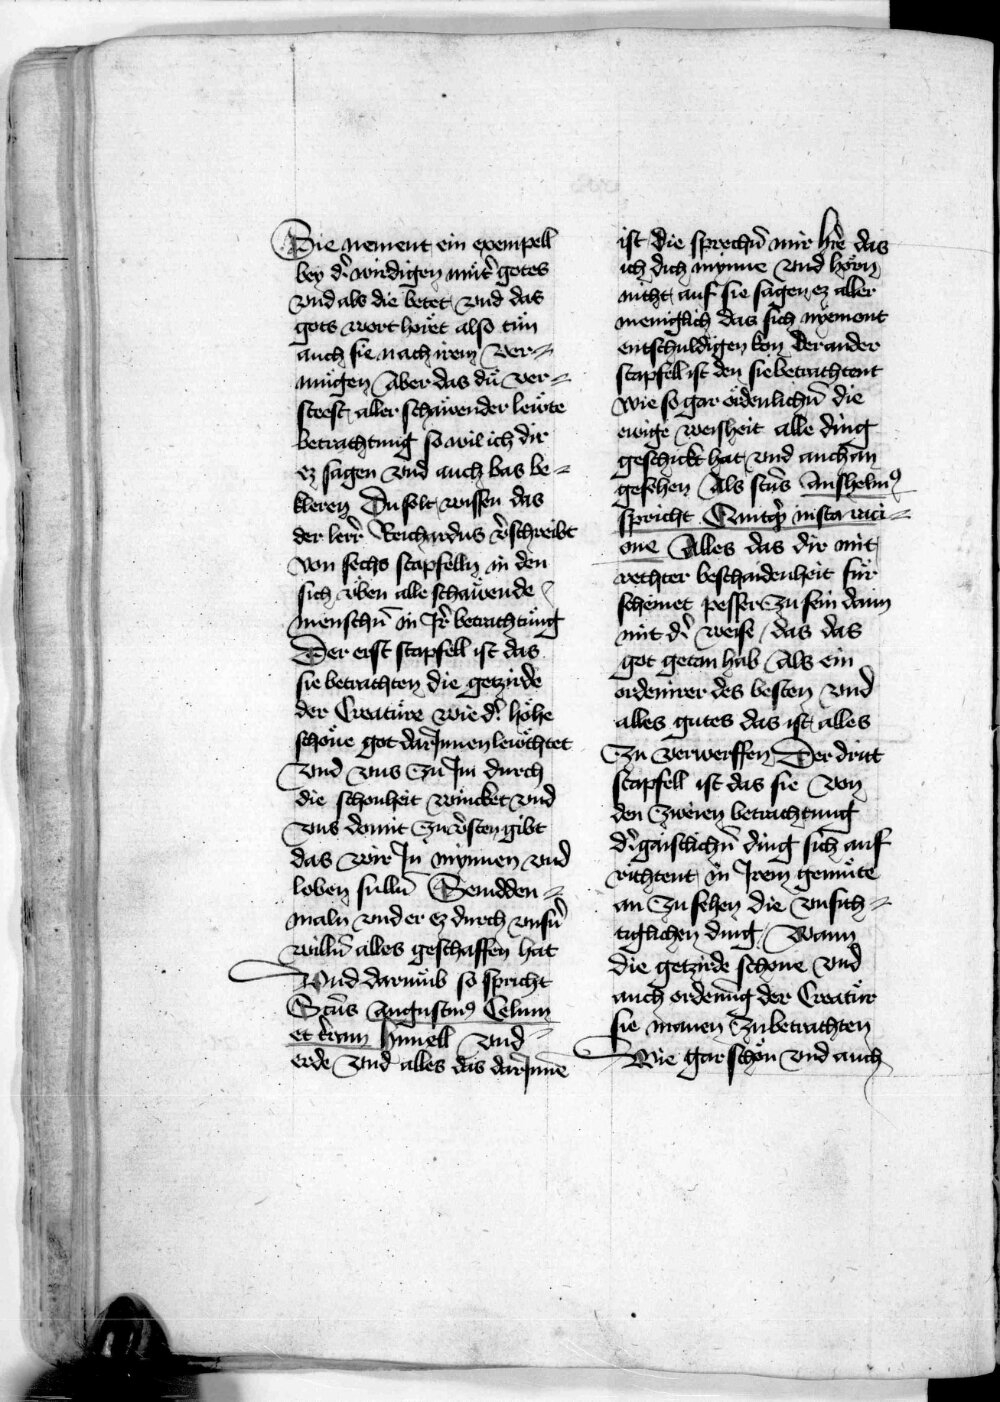 Sie nement ein exempell
bey dˀ wirdigen mutˀ gotes
vnd als die betet vnd das
gots wort höret also tün
auch sie nach irem ver=
mügen Aber das dü ver=
steest aller schawender lewte
betrachtung so wil ich dir
ez sagen vnd auch bas be=
kleren Du solt wissen das
der lerˀ Reichardus vˀschreibt
von sechs stapfelln in den
sich vben alle schawende
menschn̄ in Jrˀ betrachtung
Der erst stapfell ist das
sie betrachten die getzirde
der Creature wie dˀ höhe
schöne got darJnnen lewchtet
vnd vns Zu Jm durch
die schonheit wincket vnd
vns domit Zu vˀsten gibt
das wir Jn mynnen vnd
loben sulln̄ Seindden=
maln vnd er ez durch vnsˀn
willn̄ alles geschaffen hat
Vnd darumb so spricht
Sctˀus Augustinꝰ Celum
et tˀram himell vnd
erde vnd alles das darJnnē
ist die sprechn̄ mir hˀre das
ich dich mynne vnd hörn
nicht auf sie sagen ez aller
meniglich das sich nyemont
entschuldigen kon Der ander
stapfell ist den sie betrachtent
wie so gar ordenlichn̄ die
ewige weisheit alle ding
geschickt hat vnd auch an
gesehen Als sctˀus Anshelmꝰ
spricht
one Alles das dir mit
rechter beschaidenheit für
scheinet pesser Zu sein dann
mit dˀ weise das das
got getan hab Als ein
ordenirer des besten vnd
alles gutes das ist alles
Zu verwerffen Der dritt
stapfell ist das sie von
den Zweien betrachtung
dˀ gaistlichn̄ ding sich auf
richtent in Jrem gemüte
an Zu sehen die vnsich=
tiglichen ding Wann
die getzirde schone vnd
auch ordenūg der Creatür
sie manen Zu betrachten
Wie gar schön vnd auch